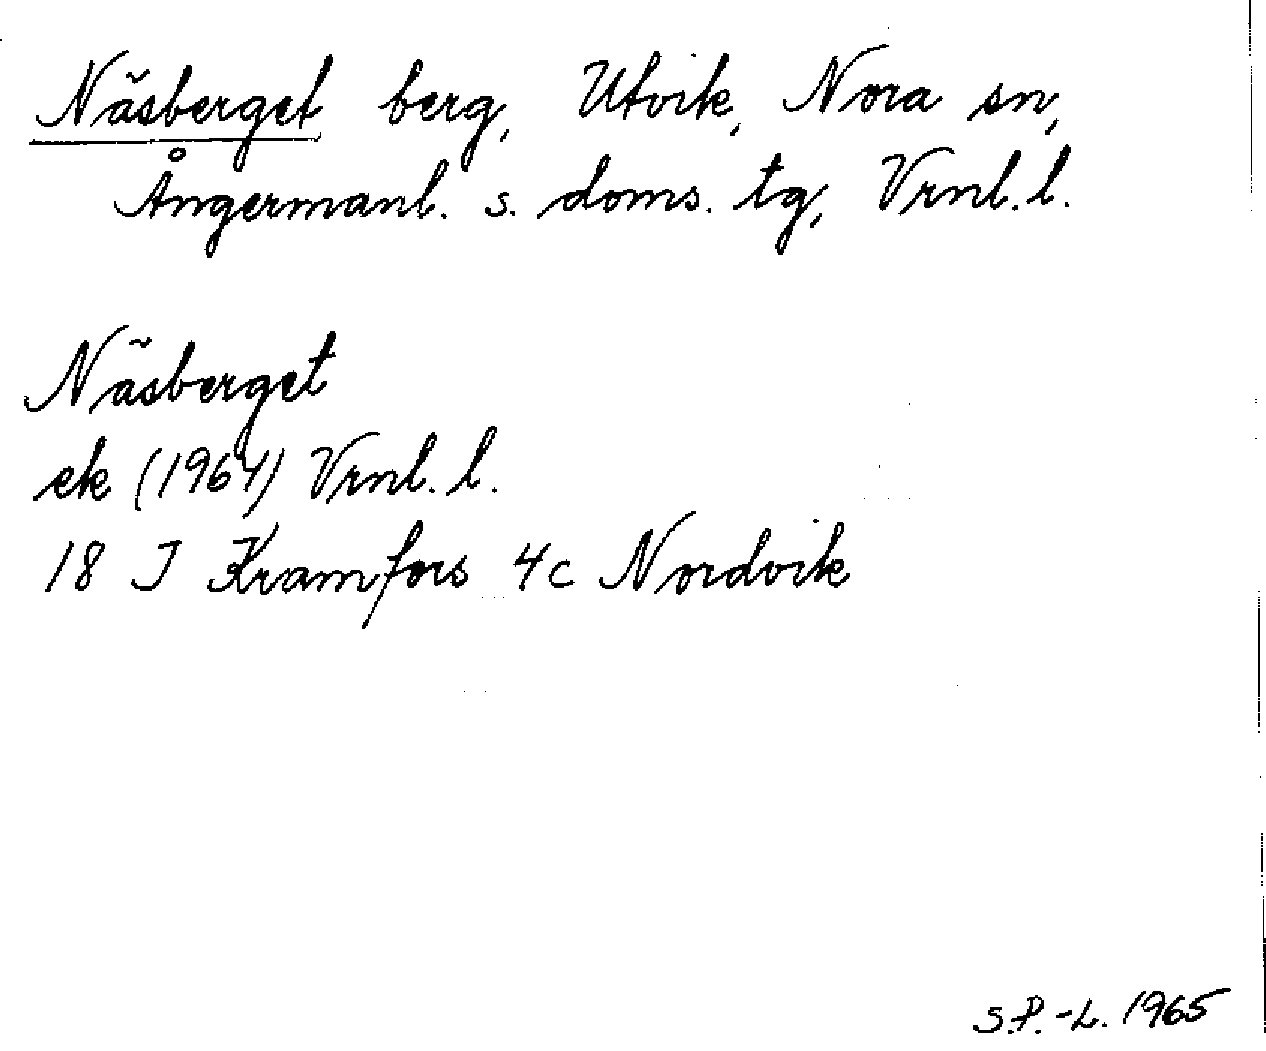 Näsberget berg, Utvik, Nora sn,
Ångermanl. s. doms. tg, Vrnl. l.
Näsberget
ek (1964) Vrnl. l.
18 J Kramfors 4c Nordvik
S.P.-L. 1965